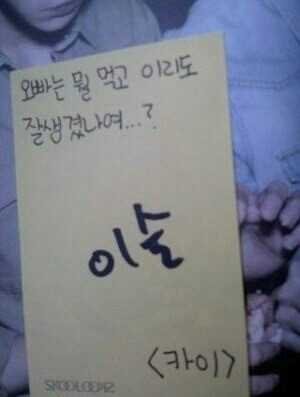 오빠는 뭘 먹고 이리도
잘생겼나여...?
이슬
<카이>
SKOOLOOKS